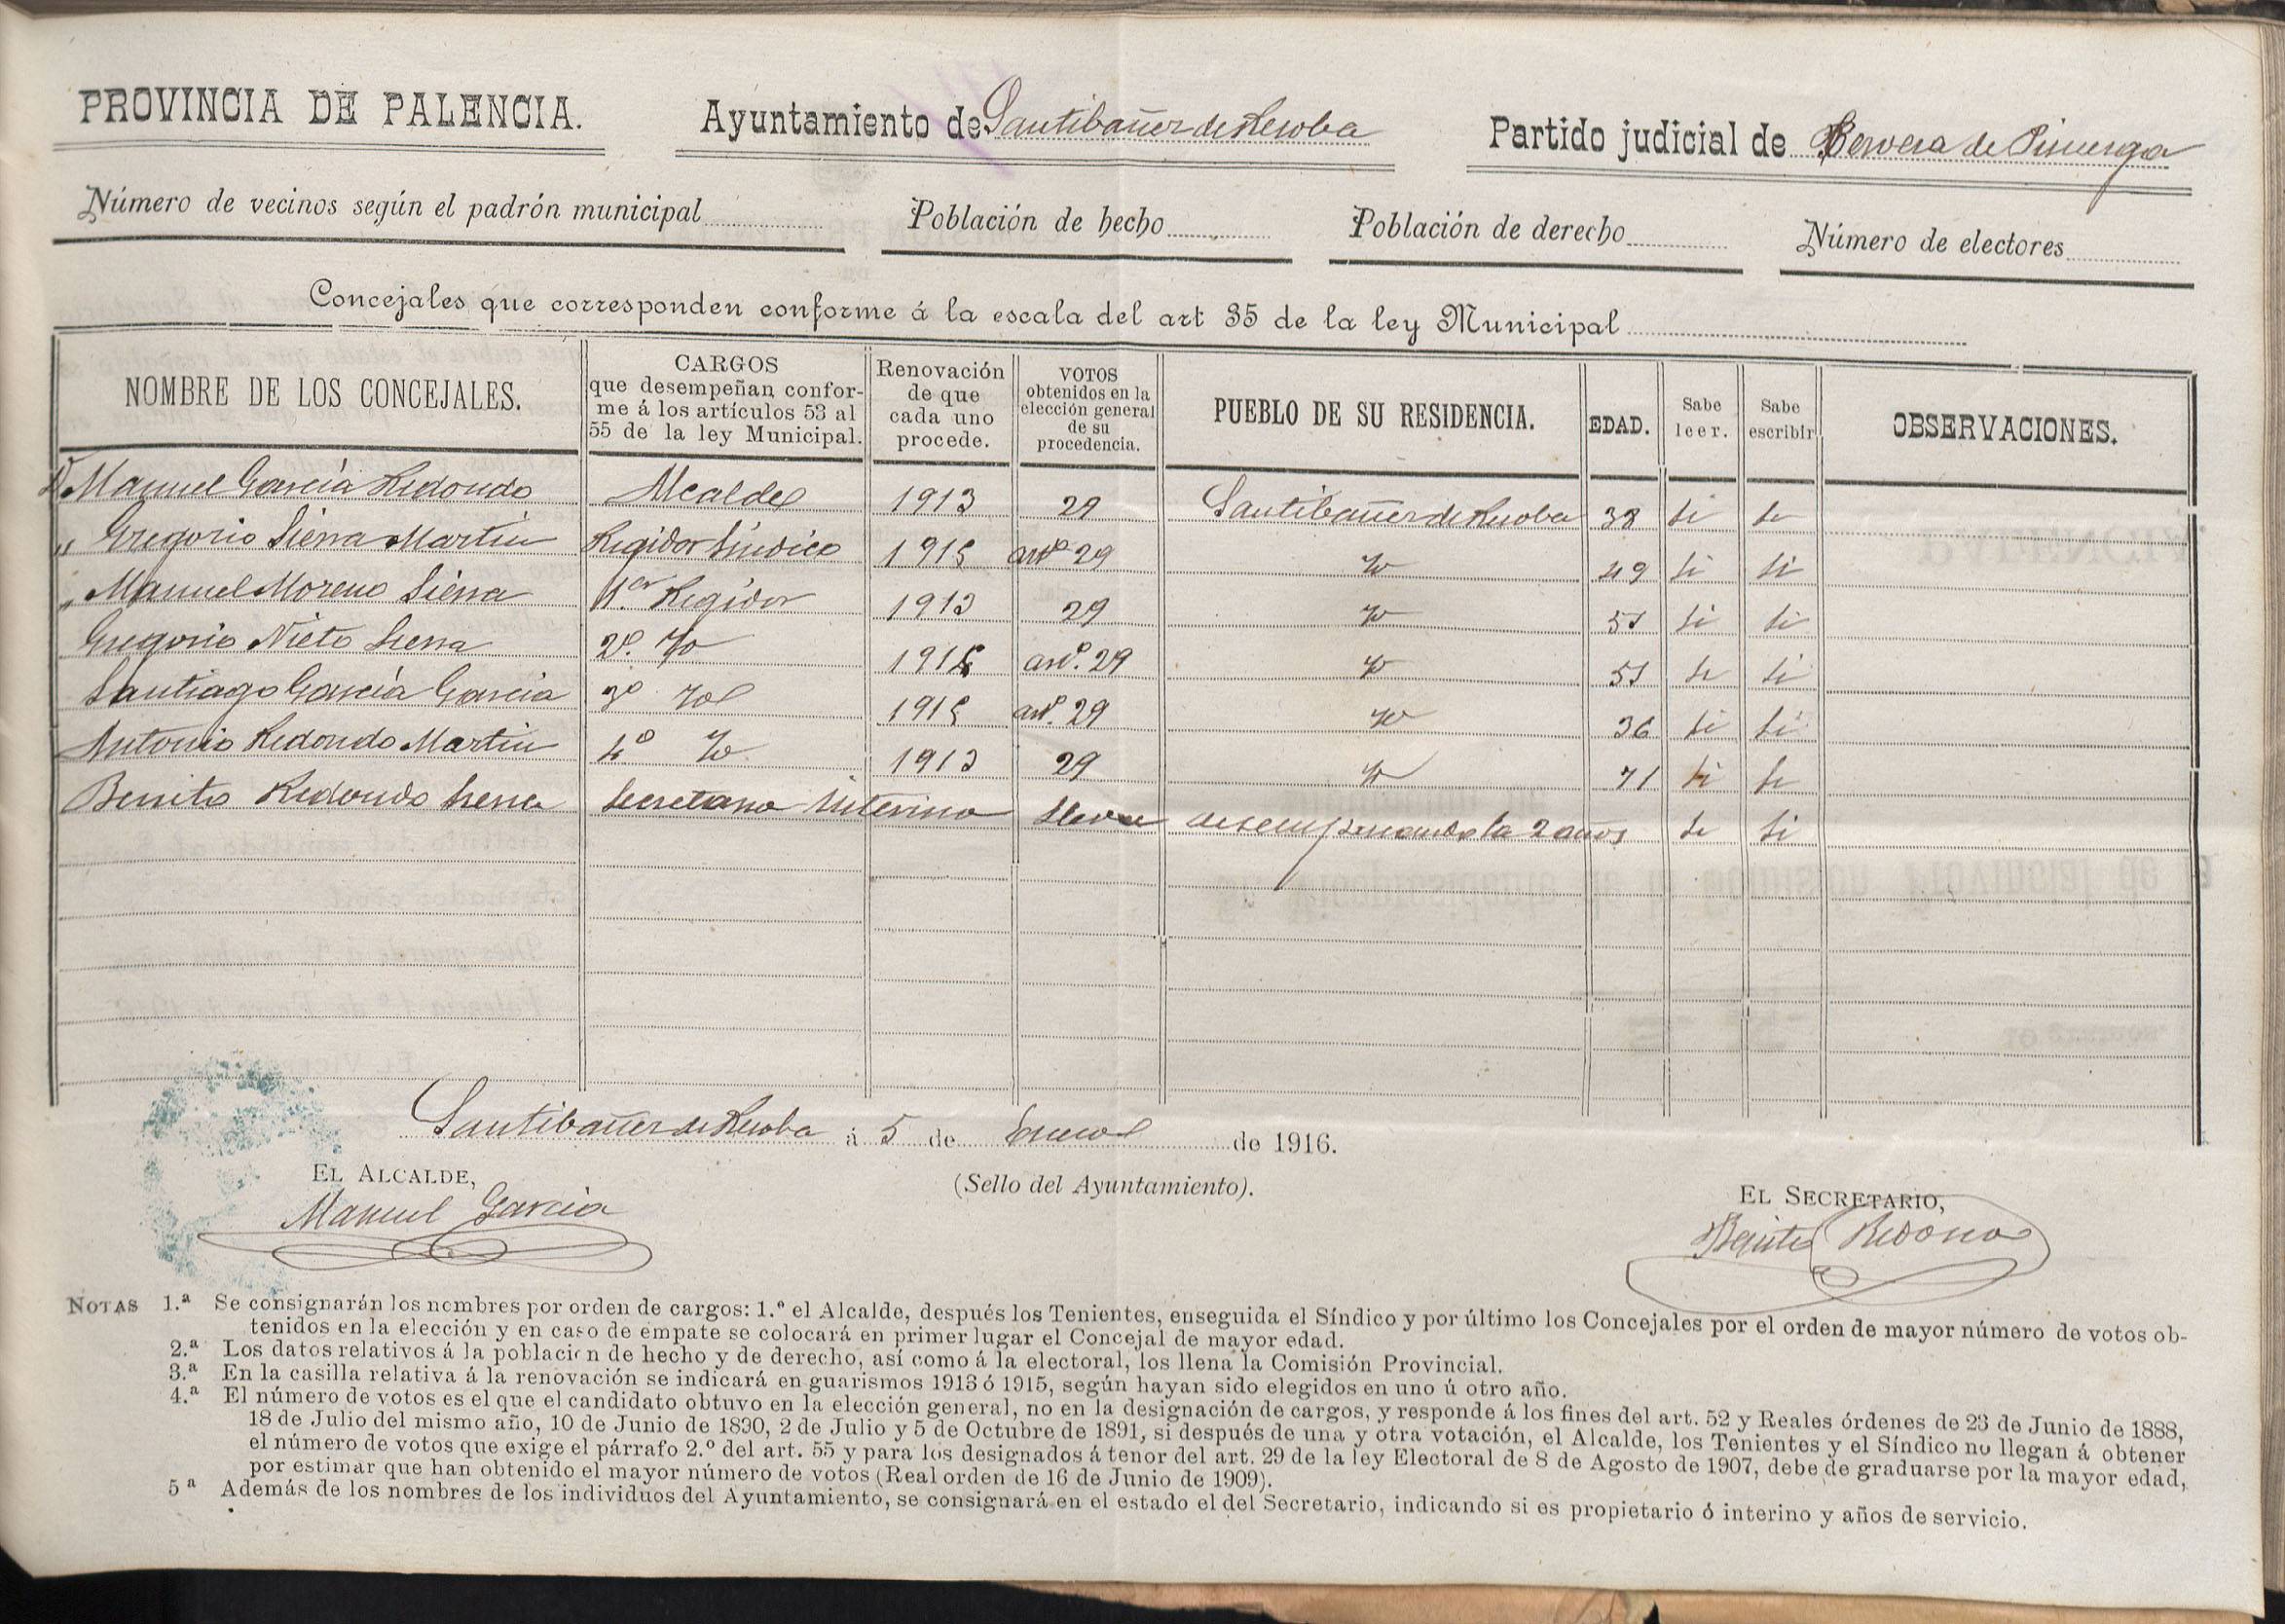 PROVINCIA DE PALENCIA. Ayuntamiento de Santibañez de Resoba Partido judicial de Cervera de Pisuerga
Número de vecinos según el padrón municipal Población de hecho Población de derecho Número de electores
Concejales que corresponden conforme á la escala del art 35 de la ley Municipal
NOMBRE DE LOS CONCEJALES. CARGOS que desempeñan conforme á los artículos 53 al 55 de la ley Municipal. Renovación de que cada uno procede. VOTOS obtenidos en la elección general de su procedencia. PUEBLO DE SU RESIDENCIA. EDAD. Sabe leer. Sabe escribir OBSERVACIONES.
D. Manuel García Redondo Alcalde 1913 29 Santibañez de Resoba 38 si si
" Gregorio Sierra Martin Regidor Sindico 1915 artº 29 Yo 49 si si
" Manuel Moreno Sierra 1.er Regidor 1913 29 Yo 51 si si
Gregorio Nieto Sierra 2º. Yo 1915 arº. 29 Yo 51 si si
Santiago García Garcia 3º Yo 1915 arº. 29 Yo 36 si si
Antonio Redondo Martin 4º Yo 1913 29 Yo 71 si si
Benito Redondo Sierra Secretario Interino lleva desempeñandola 2 años si si
Santibañez de Resoba á 5 de Enero de 1916.
EL ALCALDE, (Sello del Ayuntamiento). EL SECRETARIO,
Manuel Garcia Benito Redondo
NOTAS 1.ª Se consignarán los nombres por orden de cargos: 1.º el Alcalde, después los Tenientes, enseguida el Síndico y por último los Concejales por el orden de mayor número de votos ob-
tenidos en la elección y en caso de empate se colocará en primer lugar el Concejal de mayor edad.
2.ª Los datos relativos á la población de hecho y de derecho, así como á la electoral, los llena la Comisión Provincial.
3.ª En la casilla relativa á la renovación se indicará en guarismos 1913 ó 1915, según hayan sido elegidos en uno ú otro año.
4.ª El número de votos es el que el candidato obtuvo en la elección general, no en la designación de cargos, y responde á los fines del art. 52 y Reales órdenes de 23 de Junio de 1888,
18 de Julio del mismo año, 10 de Junio de 1890, 2 de Julio y 5 de Octubre de 1891, si después de una y otra votación, el Alcalde, los Tenientes y el Síndico no llegan á obtener
el número de votos que exige el párrafo 2.º del art. 55 y para los designados á tenor del art. 29 de la ley Electoral de 8 de Agosto de 1907, debe de graduarse por la mayor edad,
por estimar que han obtenido el mayor número de votos (Real orden de 16 de Junio de 1909).
5 ª Además de los nombres de los individuos del Ayuntamiento, se consignará en el estado el del Secretario, indicando si es propietario ó interino y años de servicio.